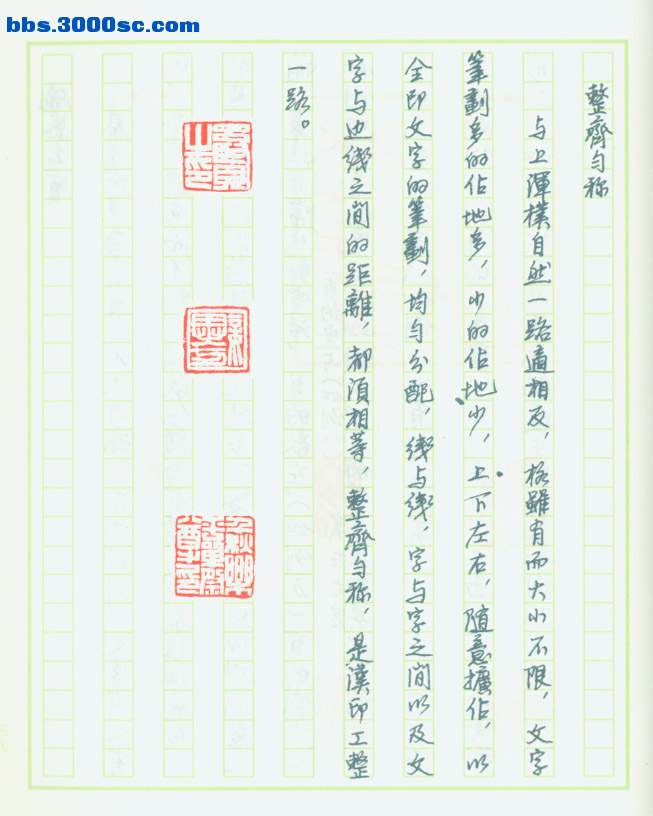 bbs.3000sc.com
整齊勻称
与上渾樸自然一路適相反，格雖有而大小不限，文字
筆劃多的佔地多，少的佔地少，上下左右，随意擴佔，以
全印文字的筆劃，均勻分配，綫与綫，字与字之間以及文
字与边綫之間的距離，都須相等，整齊勻称，是漢印工整
一路。